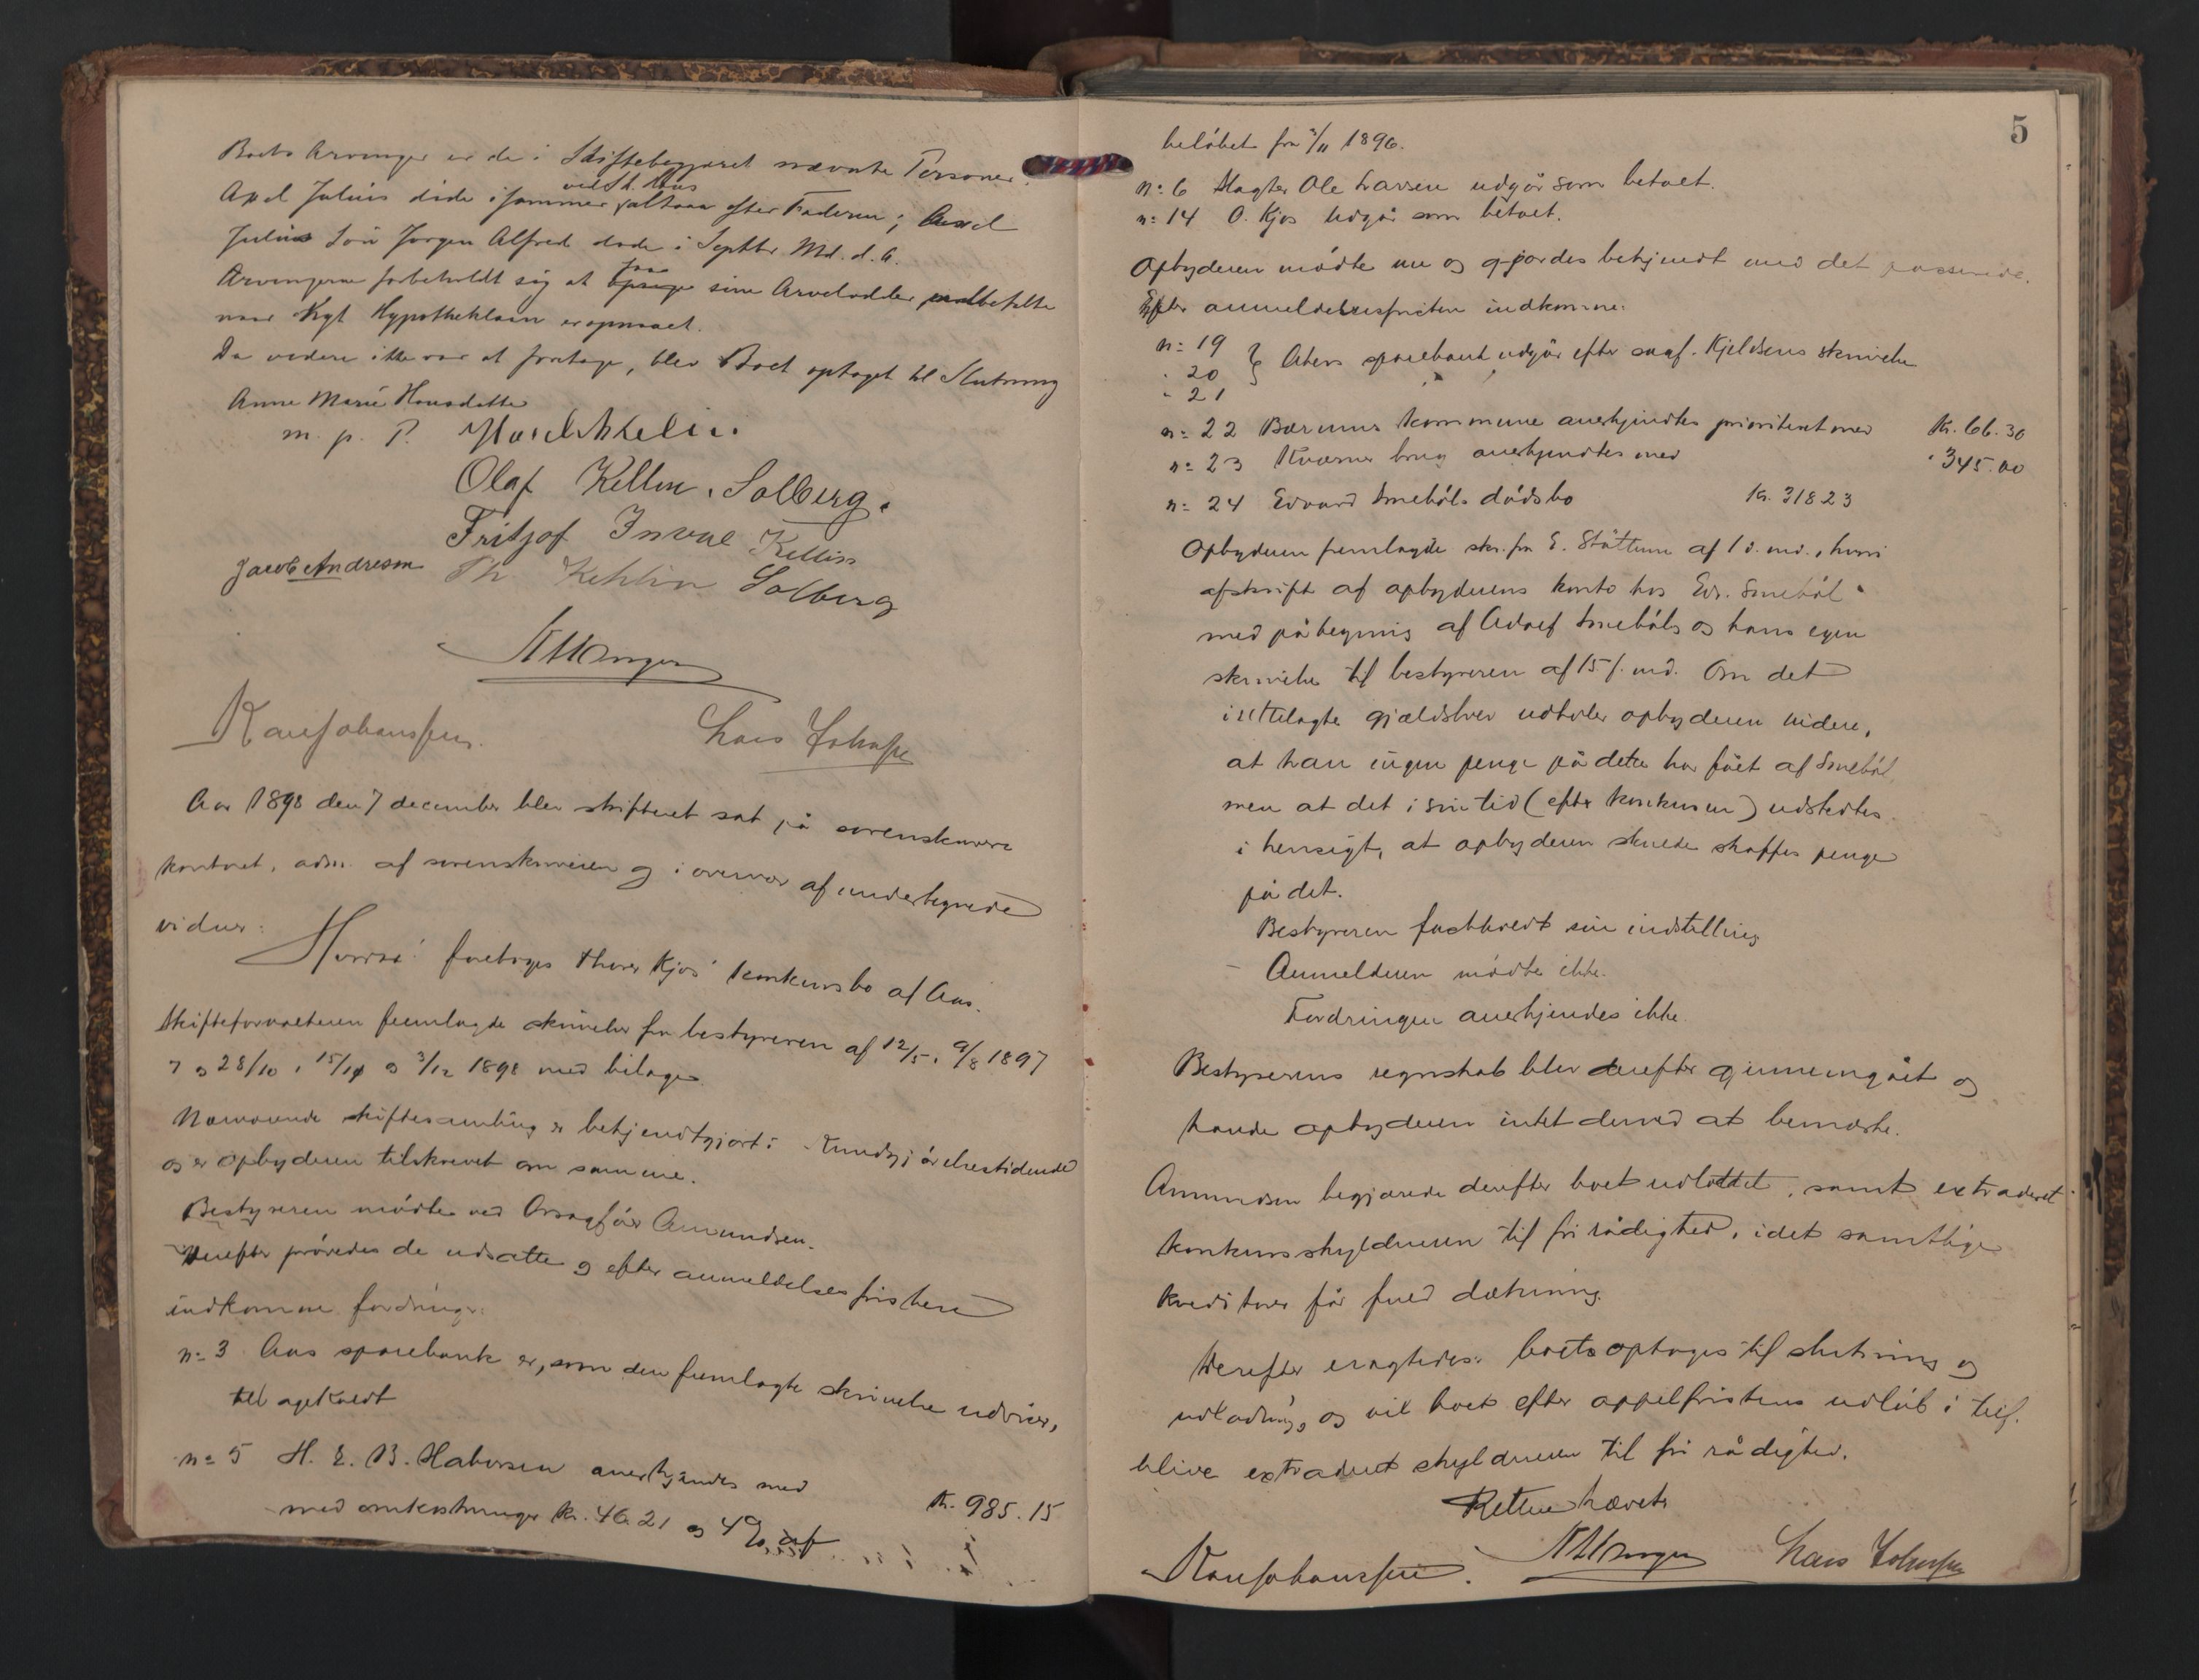 Boets Arvinger er de i Skiftebegjæret nævnte Personer.
Axel Julius døde i sommer ved St. Hans altsaa efter Faderen; Axel
Julius Søn Jørgen Alfred døde i Septbr Md. d. A.
Arvingerne forbeholdt sig at faa sine Arvelodder udbetalte
naar Hypotheklaan er opnaaet.
Da videre ikke var at foretage, blev Boet optaget til Slutning
Anne Marie Hansdatter
m. p. P.
Olaf Kellin. Solberg.
Fritjof Kellin
Jacob Andresen Th Kehlin Solberg
Lars
Aar 1898 den 7 december blev skifteret sat på sorenskriver
kontoret, adm. af sorenskriveren og i overvær af undertegnede
vidner:
Hvorda foretoges Thorer Kjos' konkursbo af Aas.
Skifteforvalteren fremlagde skrivelser fra bestyreren af 12/5, 9/8 1897
7 og 28/10, 15/11 og 3/12 1898 med bilage.
Nærværende skiftesamling er bekjendtgjort i Kundgjörelsestidende
og er opbyderen tilskrevet om samme.
Bestyreren mödte ved Orsagför Amundsen.
Derefter prövedes de udsatte og efter anmeldelsesfristen
indkomne fordringer:
no 3 Aas sparebank er, som den fremlagte skrivelse udviser,
tilbagekaldt
no 5 H. E. B. Halvorsen anerkjendes med Kr. 985.15
med omkostninger kr. 46.21 og 4% af
5
belöbet fra 3/11 1896.
no 6 Slagter Ole Larsen udgår som betalt.
no 14 O. Kjos udgår som betalt.
Opbyderen mödte nu og gjordes bekjendt med det passerede.
Efter anmeldelsesfristen indkomne:
no 19
" 20 } Akers sparebank udgår efter saaf. Kjeldsens skrivelse
" 21
no 22 Bærums kommune anerkjendtes prioriteret med Kr. 66.30
no 23 Kværner brug anerkjendtes med " 345.00
no 24 Edvard Smeböls dödsbo Kr. 318 23
Opbyderen fremlagde skr. fra E. Stöttum af 1 d. md., hvori
afskrift af opbyderens konto hos Edv. Smeböl
med påtegning af Adolf Smeböls og hans egen
skrivelse til bestyreren af 15 f. md. Om det
indtelagte gjældsbrev udtaler opbyderen videre,
at han ingen penge på dette har fået af Smeböl
men at det i sin tid (efter konkursen) udstedtes
i hensigt, at opbyderen skulde skaffes penge
på det.
Bestyreren fastholdt sin indstilling
Anmelderen mödte ikke.
Fordringen anerkjendes ikke.
Bestyrerens regnskab blev derefter gjennemgået og
havde opbyderen intet derved at bemærke.
Amundsen begjærede derefter boet udloddet, samt extraderet
konkursskyldneren til fri rådighed, idet samtlige
kreditorer får fuld dækning.
Derefter eragtedes: boet optages til slutning og
udlodning, og vil boet efter appelfristens udlöb i tilf.
blive extraderet skyldneren til fri rådighed.
Retten hævet
Lars